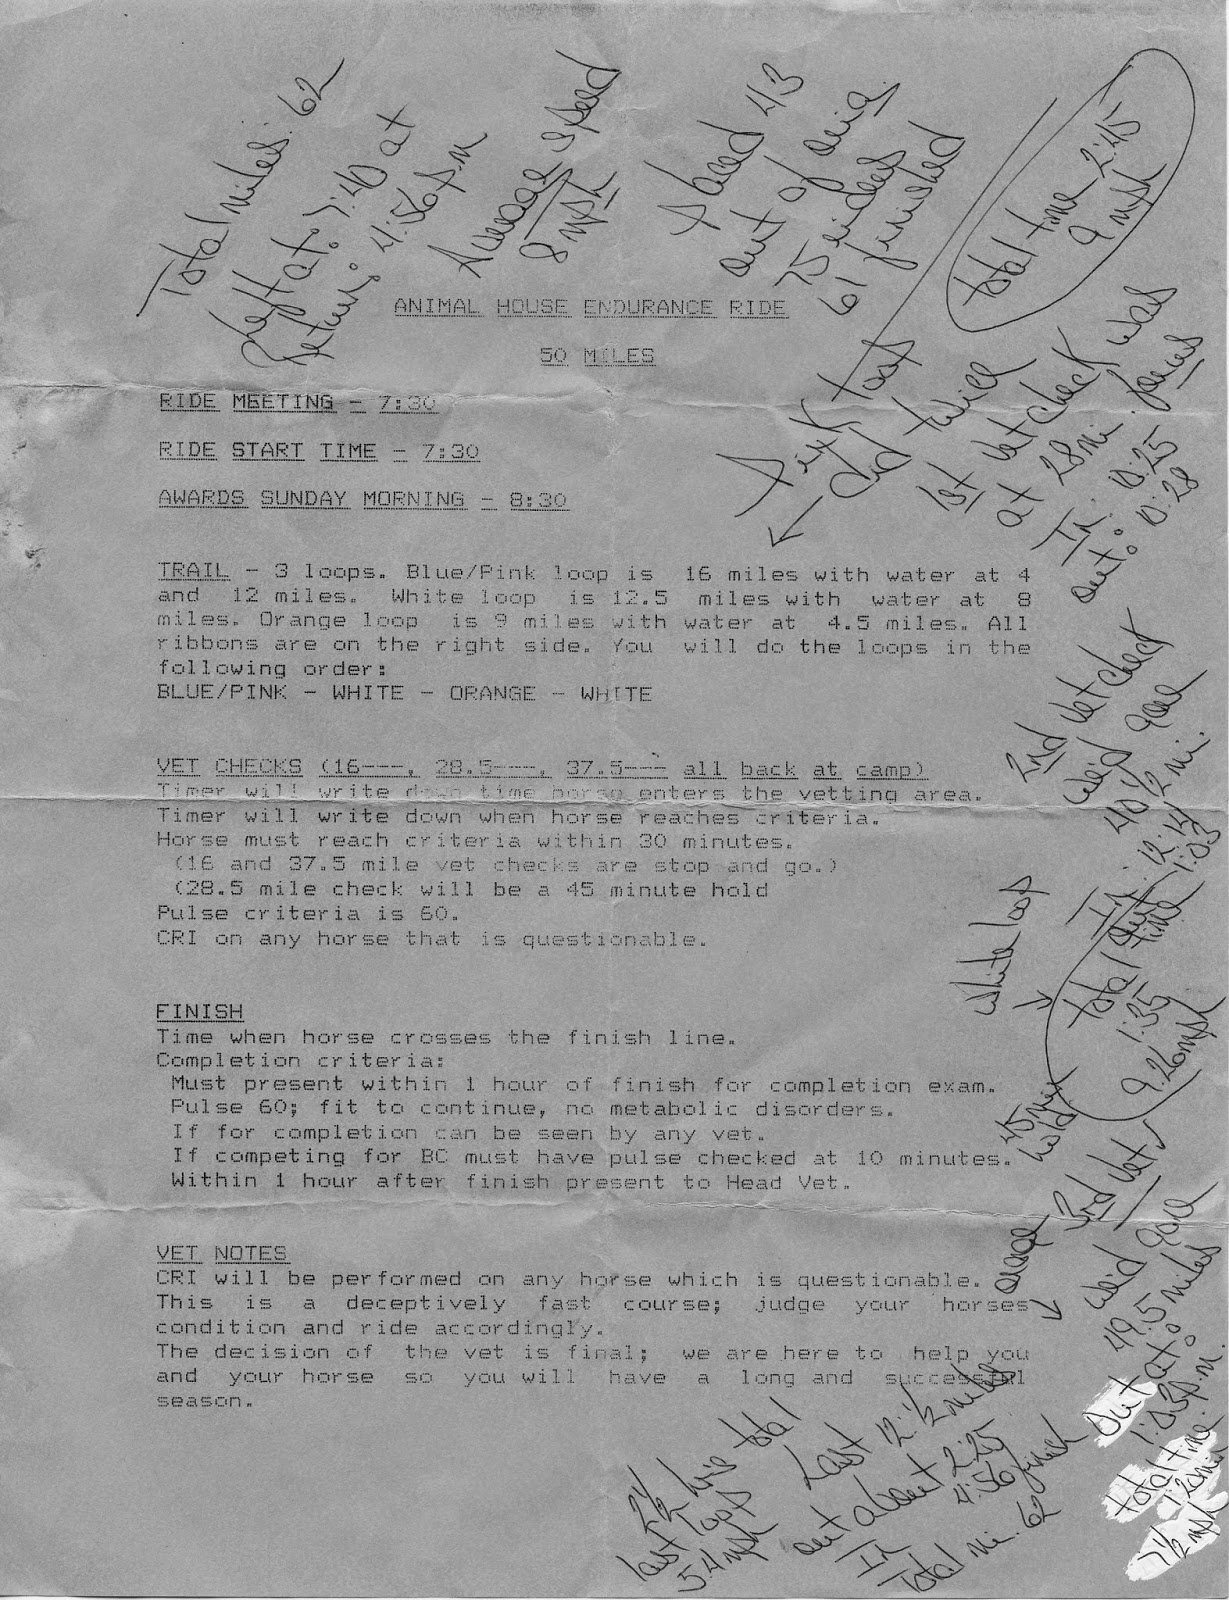 Total miles: 62
Left at: 7:40 at
Return: 4:56 p.m
Average speed
8 mph
placed 43
out of
75 riders
61 finished
total time 2:45
9 mph
ANIMAL HOUSE ENDURANCE RIDE
50 MILES
RIDE MEETING - 7:30
RIDE START TIME - 7:30
AWARDS SUNDAY MORNING - 8:30
pink loop
did twice
1st vet check was
at 28 mi.
In: 10:25
out: 10:28
TRAIL - 3 loops. Blue/Pink loop is 16 miles with water at 4
and 12 miles. White loop is 12.5 miles with water at 8
miles. Orange loop is 9 miles with water at 4.5 miles. All
ribbons are on the right side. You will do the loops in the
following order:
BLUE/PINK - WHITE - ORANGE - WHITE
2nd vet check
we'd gone
40 1/2 mi.
In: 12:14
out 1:03
VET CHECKS (16---, 28.5---, 37.5--- all back at camp)
Timer will write down time horse enters the vetting area.
Timer will write down when horse reaches criteria.
Horse must reach criteria within 30 minutes.
(16 and 37.5 mile vet checks are stop and go.)
(28.5 mile check will be a 45 minute hold
Pulse criteria is 60.
CRI on any horse that is questionable.
white loop
total time
1:35
9.26 mph
45 min
hold
FINISH
Time when horse crosses the finish line.
Completion criteria:
Must present within 1 hour of finish for completion exam.
Pulse 60; fit to continue, no metabolic disorders.
If for completion can be seen by any vet.
If competing for BC must have pulse checked at 10 minutes.
Within 1 hour after finish present to Head Vet.
orange
3rd vet
we'd gone
49.5 miles
out at:
1:03 p.m.
total time:
1:20 min
7 1/2 mph
VET NOTES
CRI will be performed on any horse which is questionable.
This is a deceptively fast course; judge your horses
condition and ride accordingly.
The decision of the vet is final; we are here to help you
and your horse so you will have a long and successful
season.
Last 12 1/2 miles
out about 2:25
In 4:56 finish
Total mi. 62
2 1/2 hrs total
last loop
5.4 mph